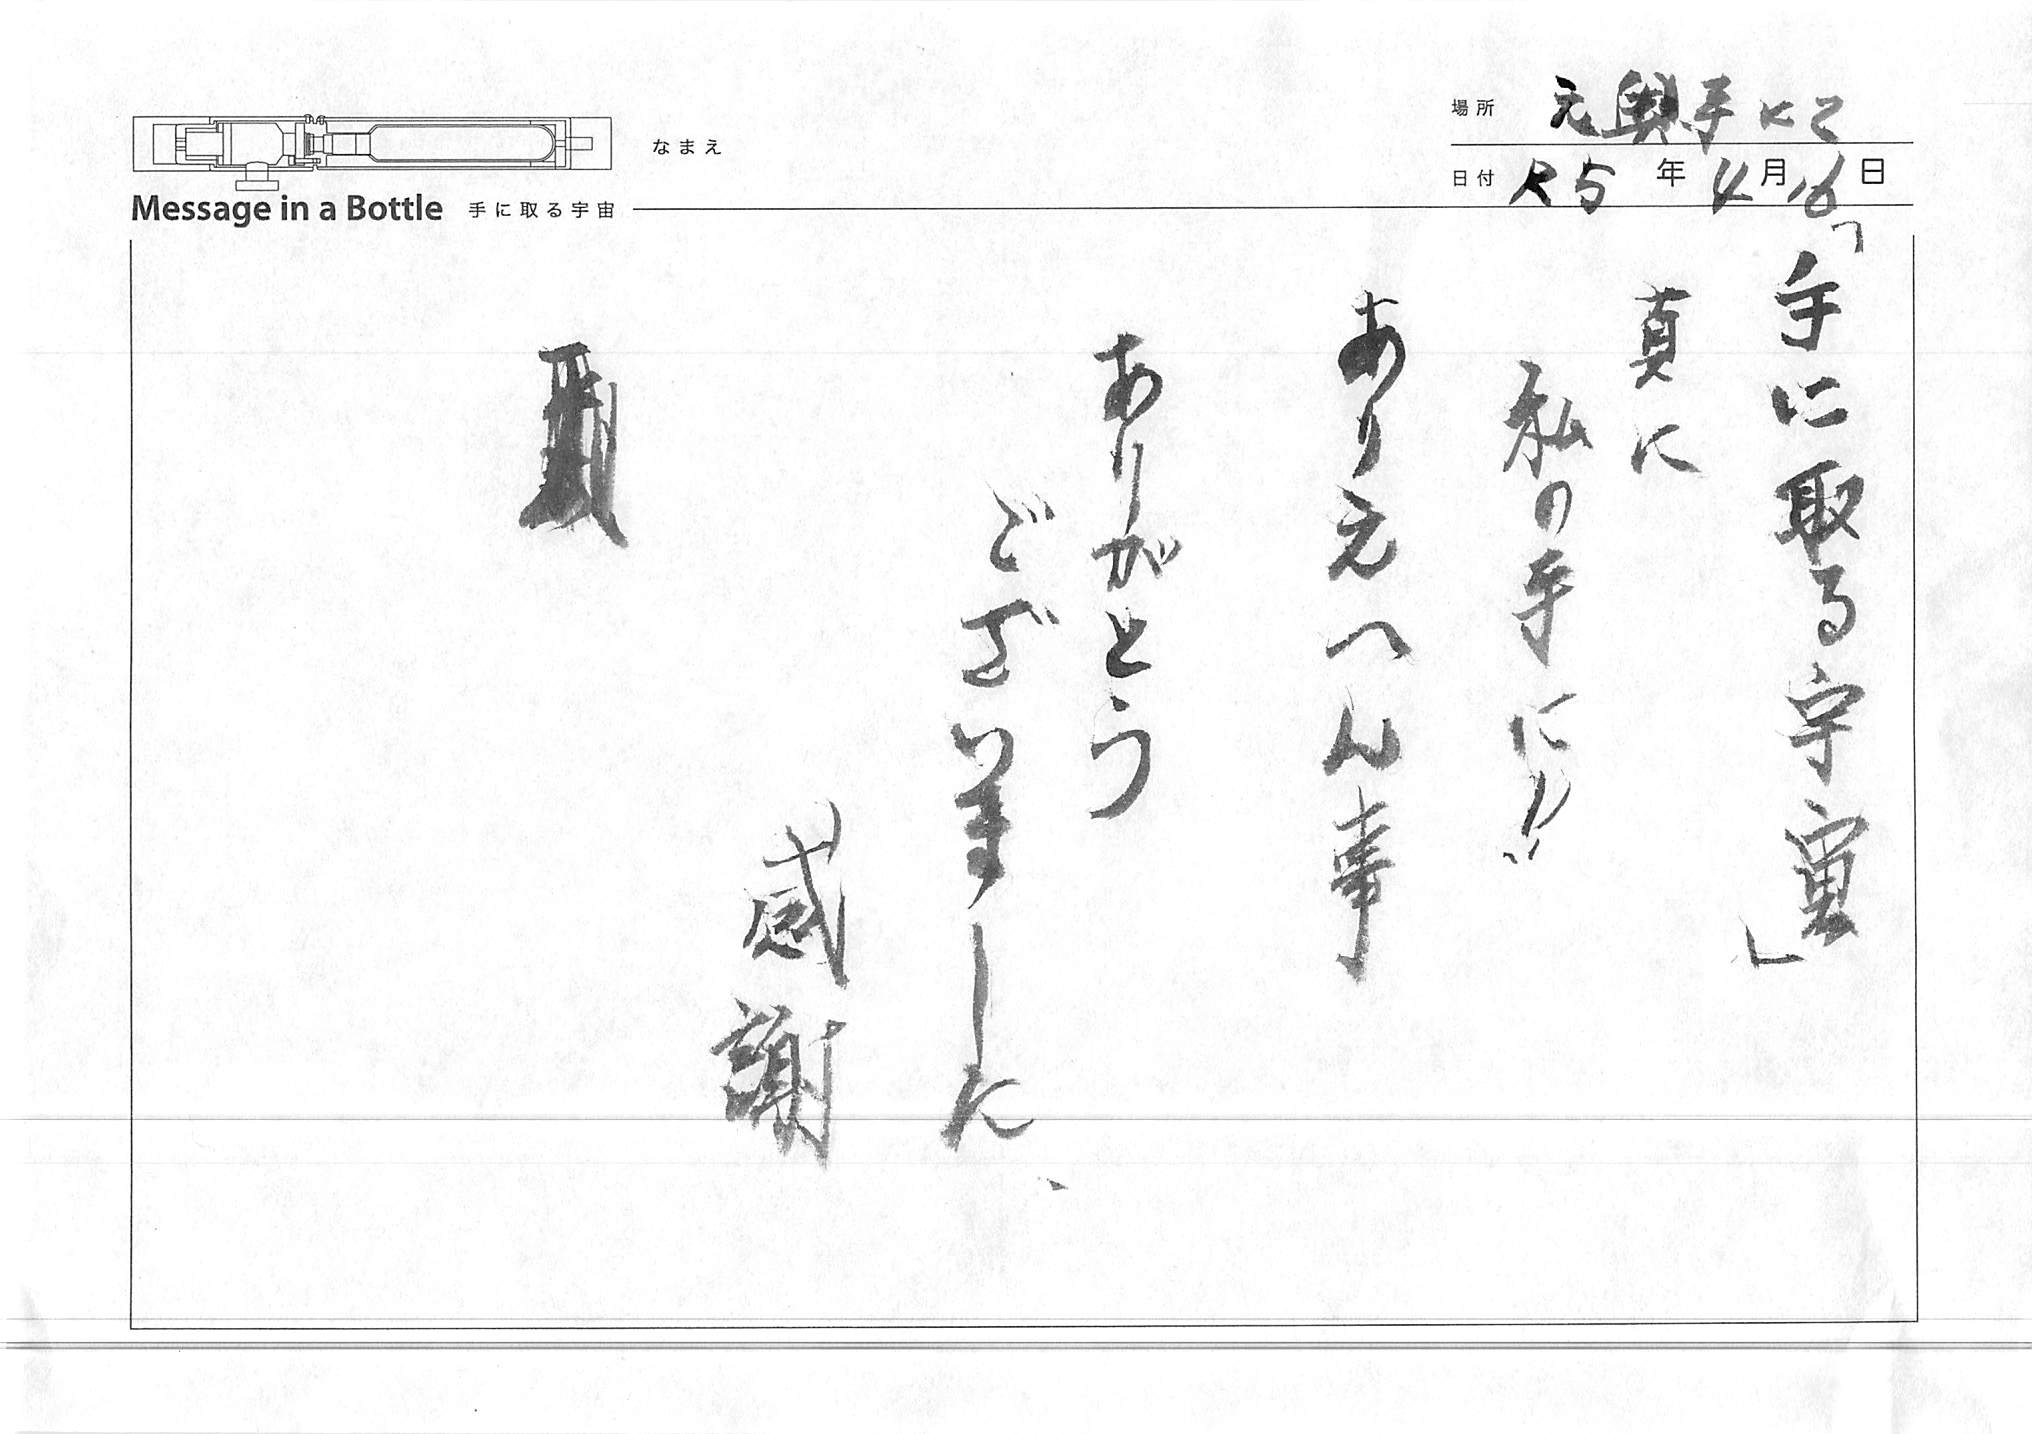 場所 元興寺にて
なまえ
日付 R5年4月16日
Message in a Bottle 手に取る宇宙
「手に取る宇宙」
真に
私の手に!!
ありえへん事
ありがとう
ございました、
感謝